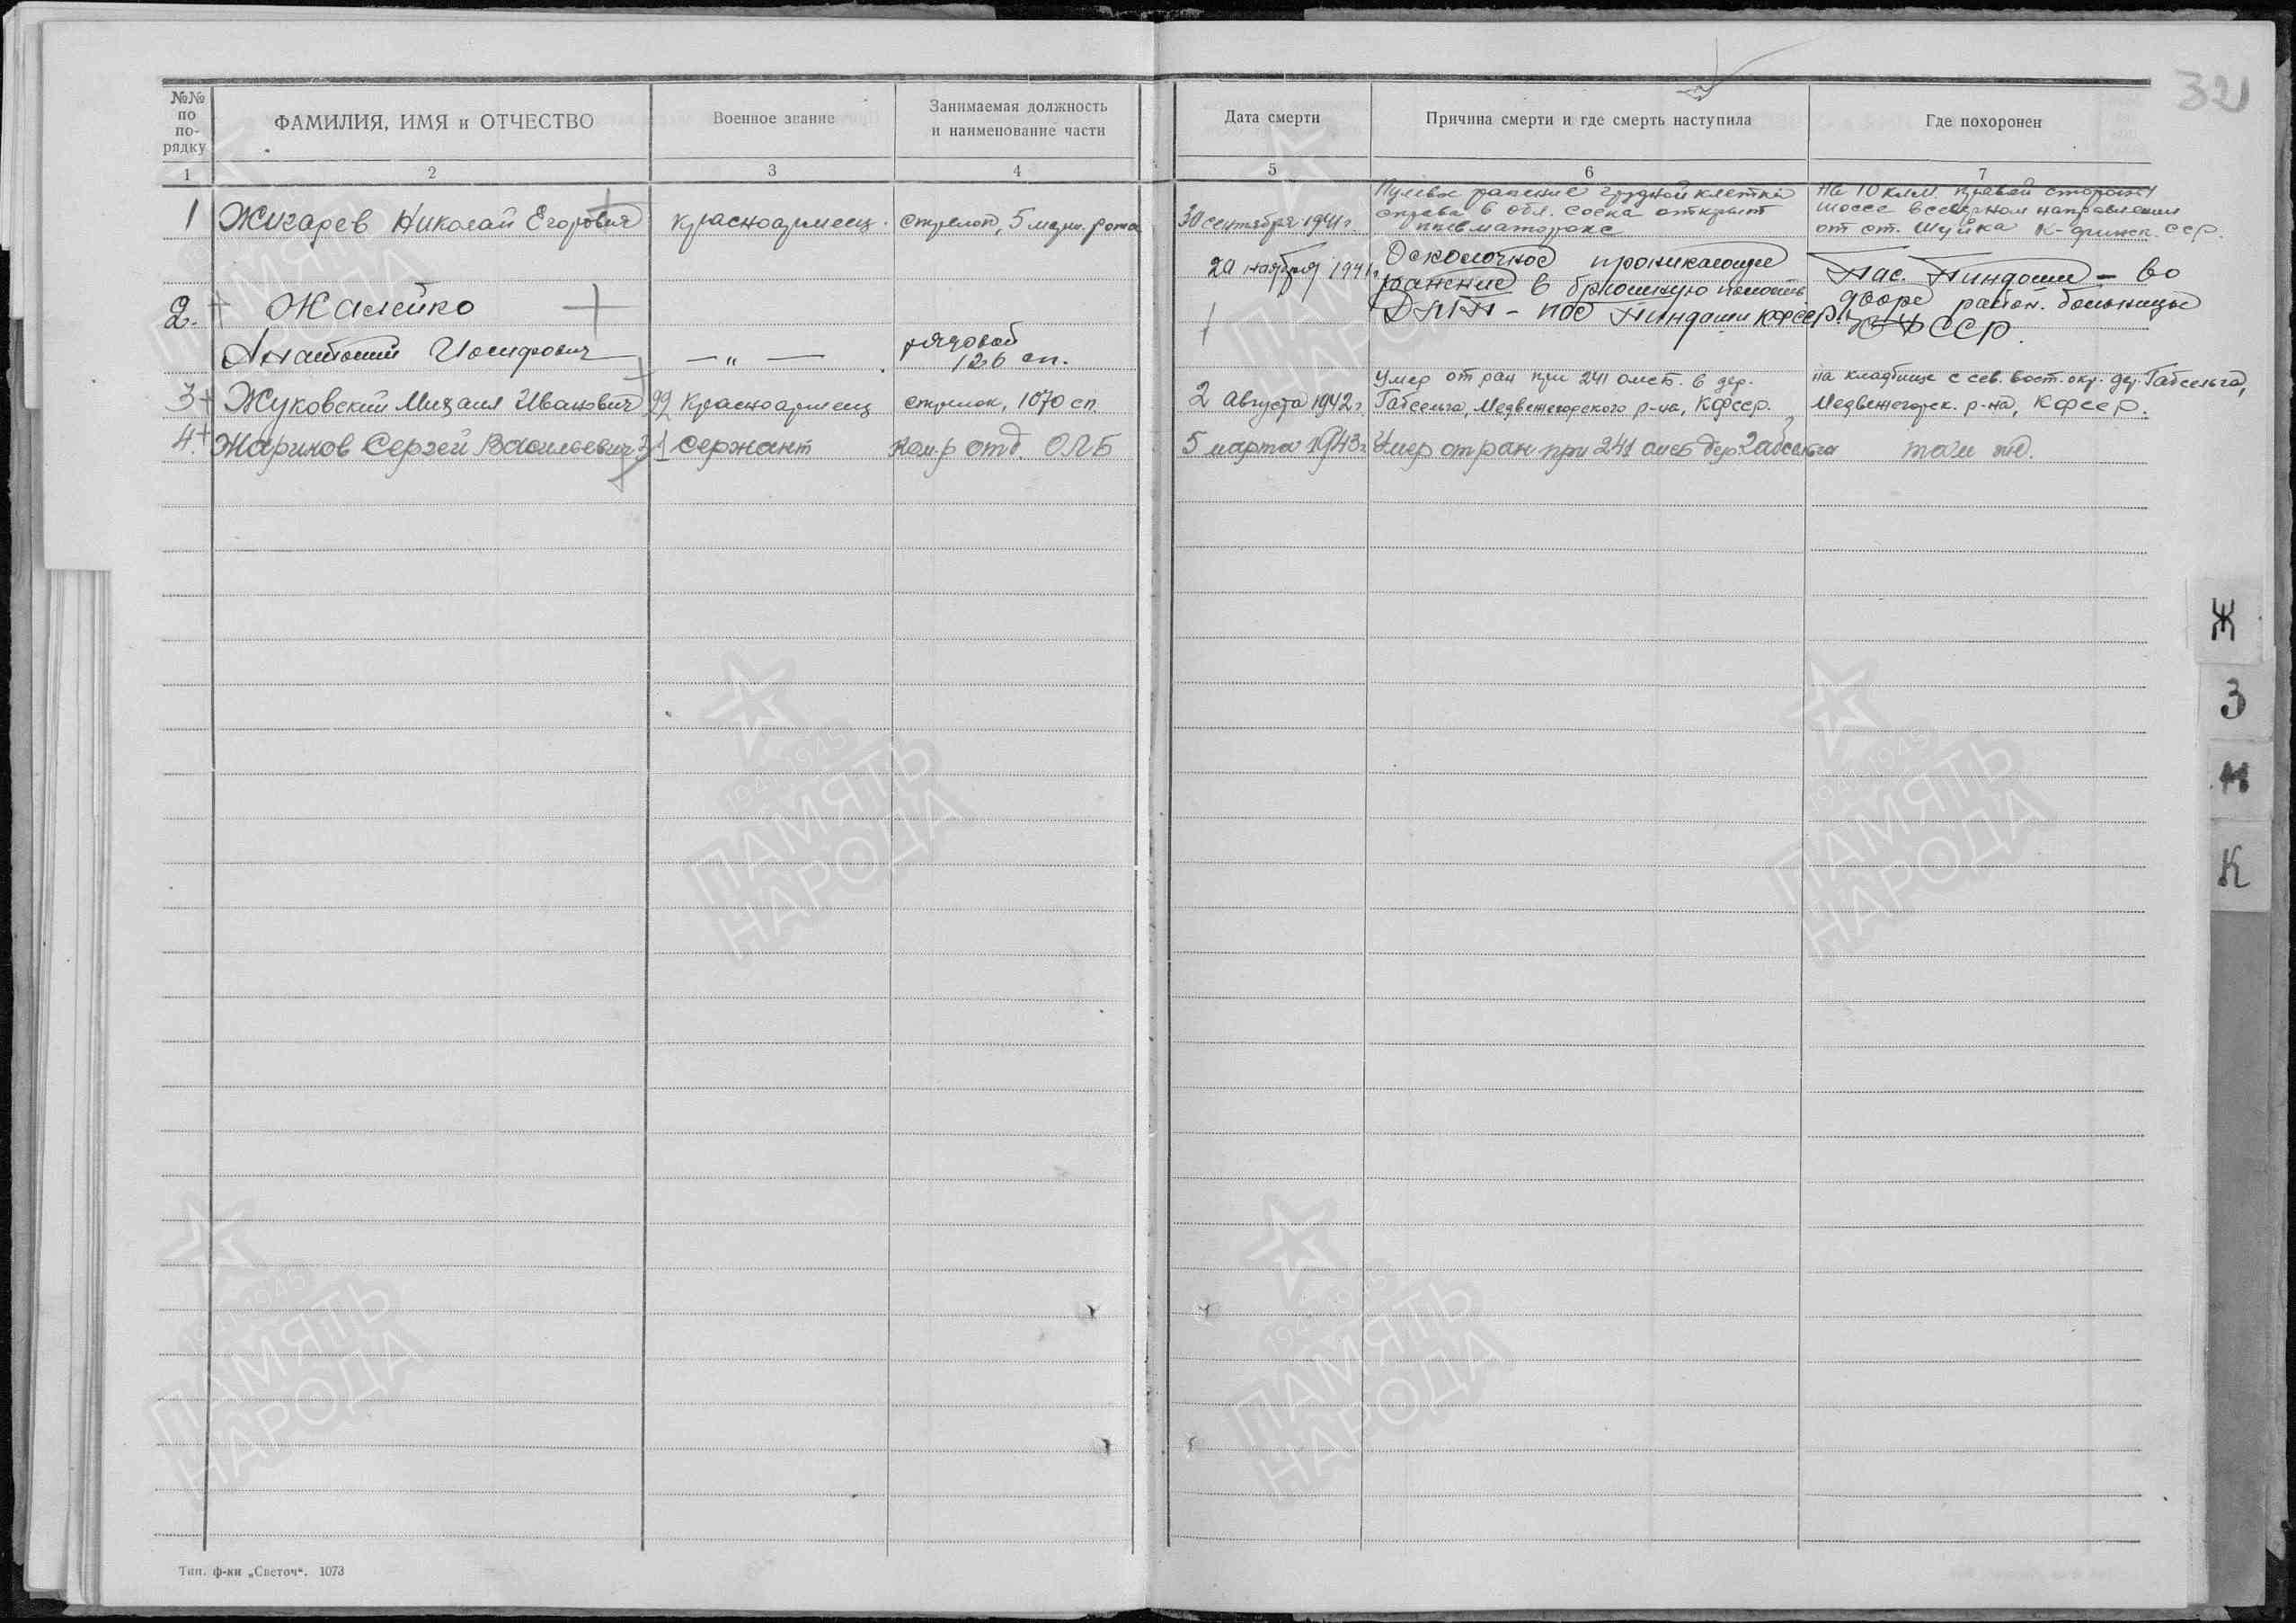 321
№№ по по- рядку
ФАМИЛИЯ, ИМЯ и ОТЧЕСТВО
Военное звание
Занимаемая должность
и наименование части
Дата смерти
Причина смерти и где смерть наступила
Где похоронен
1 2 3 4 5 6 7
1 Жигарев Николай Егорович красноармеец. стрелок, 5 марш. рота 30 сентября 1941 г.
Пулевое ранение грудной клетки
справа в обл. соска открыт
пневматоракс
На 10 клм. правой стороны
шоссе в северном направлении
от ст. Шуйка К-финск. сср.
2. Жалейко
Антоний Иосифович — " — рядовой
126 сп.
20 ноября 1941 г.
Осколочное проникающее
ранение в брюшную полость
ДПП - пос Пиндоши КФССР.
Пос. Пиндоши - во
дворе район. больницы
КФССР.
3 Жуковский Михаил Иванович 22 Красноармеец стрелок, 1070 сп. 2 августа 1942 г.
Умер от ран при 241 омсб. в дер.
Габсельга, Медвежегорского р-на, КФССР.
на кладбище с сев. вост. окр. дер. Габсельга,
Медвежегорск. р-на, КФССР.
4. Жаринов Сергей Васильевич 31 Сержант Ком-р отд. ОЛБ 5 марта 1943 г. Умер от ран при 241 омсб дер Габсельга
Ж
З
И
К
Тип. ф-ки „Светоч". 1073
1941-1945
ПАМЯТЬ
НАРОДА